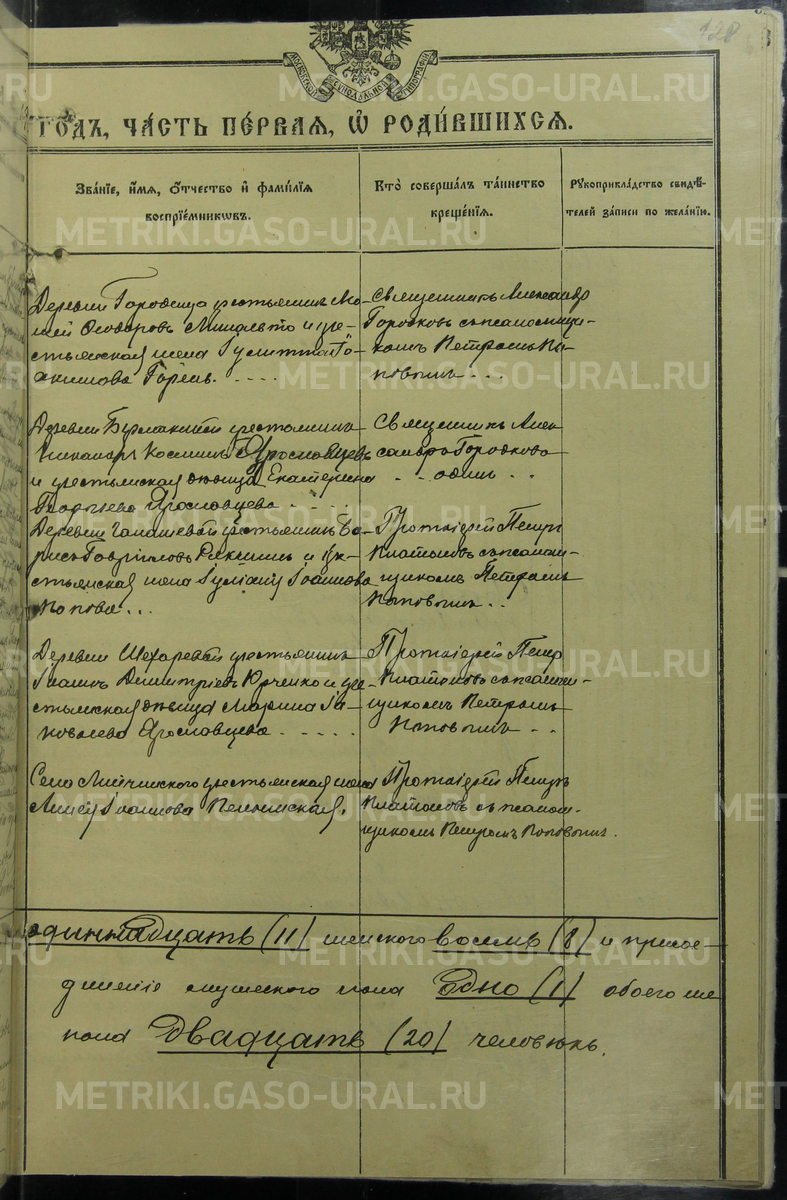 128
МОСКОВСКОЙ СѴНОДАЛЬНОЙ ТИПОГРАФІИ
ГО́ДЪ, ЧА́СТЬ ПЕ́РВАЯ, Ѡ҆ РОДИ́ВШИХСЯ.
ЗВА́НІЕ, И҆́МЯ, Ѻ҆́ТЧЕСТВО И҆ ФАМИ́ЛІЯ
ВОСПРІЕ́МНИКѠВЪ.
КТО̀ СОВЕРША́ЛЪ ТА́ИНСТВО
КРЕЩЕ́НІЯ.
РУКОПРИКЛА́ДСТВО СВИДѢ́-
ТЕЛЕЙ ЗА́ПИСИ ПО ЖЕЛА́НІЮ.
Деревни Городища крестьянинъ
Ѳеодоровъ и кре-
стьянская жена Іулитта Іо-
акимова
Священникъ Александръ
Городковъ съ псаломщи-
комъ Петромъ По-
повымъ . . .
Деревни крестьянинъ
Никаноръ Космин Ярославцевъ
и крестьянская дѣвица Екатерина
Георгіева Ярославцева . . . .
Священникъ Алек
сандръ Городковъ
. . одинъ . .
Деревни крестьянинъ Бо-
рисъ Гавріиловъ и кре-
стьянская жена Іуліанія Іоаннова
Попова . . .
Протоіерей Петръ
Платоновъ съ псалом-
щикомъ Петромъ
Поповымъ . .
Деревни крестьянинъ
Іоаннъ Димитріевъ Юрченко и кре-
стьянская дѣвица Марина Іа-
ковлева Ярославцева . . . . .
Протоіерей Петръ
Платоновъ съ псаломщ-
щикомъ Петромъ
Поповымъ . .
Село крестьянская жена
Іоаннова
Протоіерей Петръ
Платоновъ съ псалом-
щикомъ Петромъ Поповымъ.
одиннадцать (11) женского восемь (8) и присое-
диненіе мужеского пола Одно (1) обоего же
пола Двадцать (20) человѣкъ.
METRIKI.GASO-URAL.RU